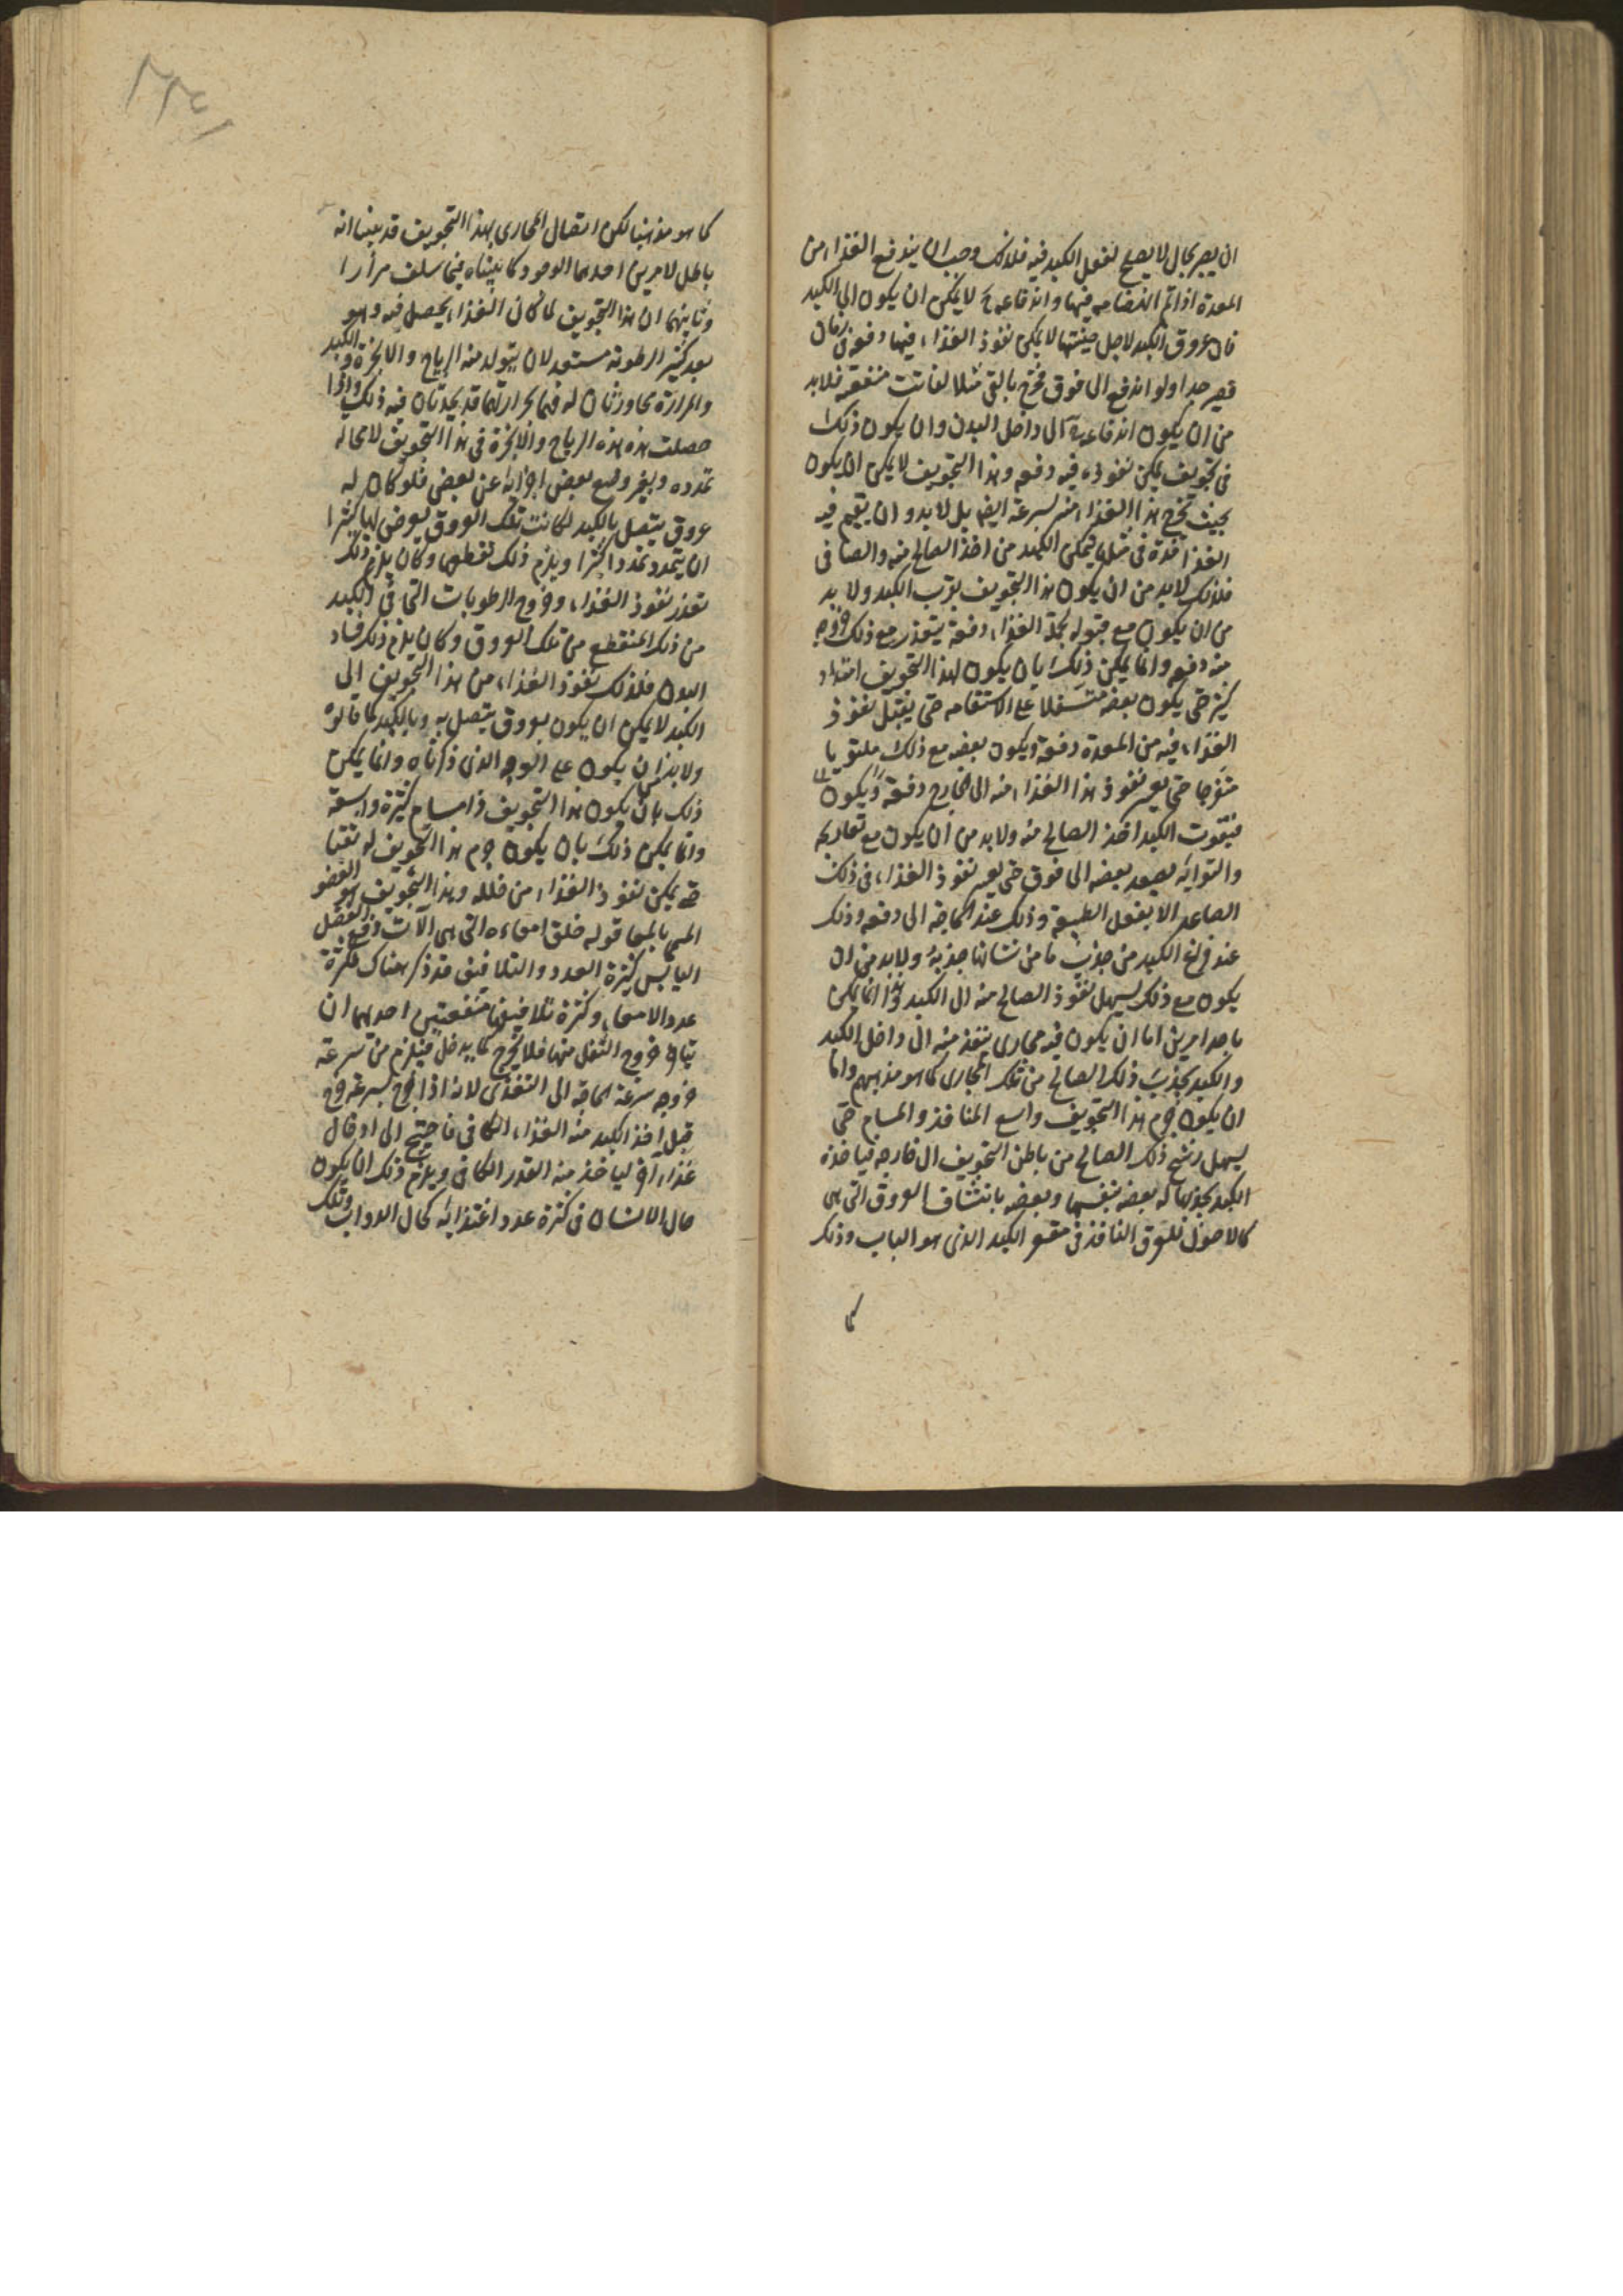 ان يصير بحال لا يصلح لفعل الكبد فيه فلذلك وجب ان يندفع الغذاء من
المعدة اذا تم انهضامه فيها واندفاعه ح لا يمكن ان يكون الى الكبد
فان عروق الكبد لاجل ضيقها لا يمكن نفوذ الغذاء فيها دفعة في زمان
قصير جدا ولو اندفع الى فوق فخرج بالقئ مثلا لفاتت منفعته فلابد
من ان يكون اندفاعه الى داخل البدن وان يكون ذلك
فى تجويف يمكن نفوذه فيه دفعه وهذا التجويف لا يمكن ان يكون
بحيث يخرج هذا الغذاء منه بسرعة ايضا بل لابد و ان يقيم فيه
الغذاء مدة فى مثلها يتمكن الكبد من اخذ الصالح منه والصافى
فلذلك لابد من ان يكون هذا التجويف بقرب الكبد ولا بد
من ان يكون مع قبوله لجملة الغذاء دفعة يتعذر مع ذلك خروجه
منه دفعه وانما يمكن ذلك بان يكون لهذا التجويف امتداد
كثير حتى يكون بعضه متسفلا على الاستقامه حتى يقبل نفوذ
الغذاء فيه من المعدة دفعة ويكون بعضه مع ذلك ملتويا
متعرجا حتى يعسر نفوذ هذا الغذاء منه الى خارج دفعة
فيفوت الكبد اخذ الصالح منه ولابد من ان يكون مع تعاريجه
والتوائه يصعد بعضه الى فوق حتى يعسر نفوذ الغذاء فى ذلك
الصاعد الا بفعل الطبيعة وذلك عند الحاجة الى دفعه وذلك
عند فراغ الكبد من جذب ما من شانها جذبه ولابد من ان
يكون مع ذلك يسهل نفوذ الصالح منه الى الكبد وهذا انما يمكن
باحد امرين اما ان يكون فيه مجارى ينفذ منه الى داخل الكبد
والكبد يجذب ذلك الصالح من تلك المجارى كما هو مذهبهم واما
ان يكون جرم هذا التجويف واسع المنافذ والمسام حتى
يسهل رشح ذلك الصالح من باطن التجويف الى خارجه فياخذه
الكبد بجذبها له بعضه بنفسها وبعضه بانتشاف العروق التى هى
كالاصول للعرق النافذ فى مقعر الكبد الذى هو الباب وذلك
كما
كما هو مذهبنا لكن اتصال المجارى بهذا التجويف قد بينا انه
باطل لامرين احدهما الوجود كما بيناه فيما سلف مرارا
وثانيهما ان هذا التجويف لما كان الغذاء يحصل فيه وهو
بعد كثير الرطوبة مستعد لان يتولد منه الرياح والابخرة والكبد
والمرارة مجاورتان له فهما بحرارتهما قد يحدثان فيه ذلك واذا
حصلت هذه الرياح والابخرة فى هذا التجويف لا محاله
تمدده ويغير وضع بعض اجزائه عن بعض فلو كان له
عروق يتصل بالكبد لكانت تلك العروق يعرض لها كثيرا
ان يتمدد تمددا كثيرا ويلزم ذلك تقطعها وكان يلزم ذلك
تعذر نفوذ الغذاء وخروج الرطوبات التى فى الكبد
من ذلك المنقطع من تلك العروق وكان يلزم ذلك فساد
البدن فلذلك نفوذ الغذاء من هذا التجويف الى
الكبد لا يمكن ان يكون بعروق يتصل به وبالكبد كما قالوه
ولابد ان يكون على الوجه الذى ذكرناه وانما يمكن
ذلك بان يكون هذا التجويف ذا مسام كثيرة واسعة
وانما يمكن ذلك بان يكون جرم هذا التجويف
حتى يمكن نفوذ الغذاء من خلله وهذا التجويف هو العضو
المسمى بالمعا قوله خلق امعاءه التى هى آلات دفع الفضل
اليابس كثيرة العدد والتلافيف قد ذكر هناك لكثرة
عدد الامعاء وكثرة تلافيفها منفعتين احديهما ان
خروج الثفل منها فلا يخرج كما يدخل فيلزم من سرعة
خروجه سرعة الحاجة الى التغذى لانه اذا خرج بسرعة خرج
قبل اخذ الكبد منه الغذاء الكافى فاحتيج الى ادخال
غذاء آخر لياخذ منه القدر الكافى ويلزم ذلك ان يكون
حال الانسان فى كثرة عدد اغتذائه كحال الدواب وتلك